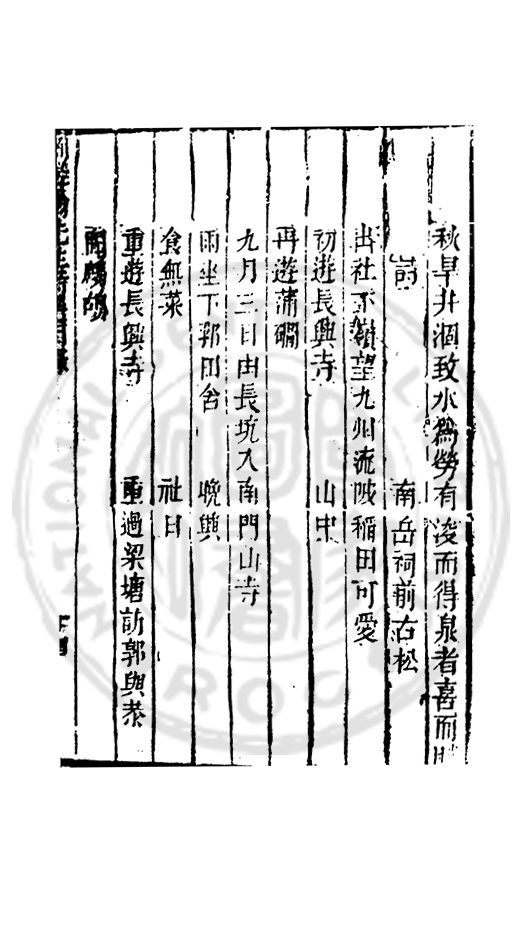 秋旱井涸致水為勞有浚而得泉者喜而賦
南岳祠前古松
出社下湖望九州流陂稻田可愛
初遊長興寺 山中
再遊蒲磵
九月三日由長坑入南門山寺
雨坐下郭田舍 晚興
食無菜 社日
重遊長興寺 重過梁塘訪郭與恭